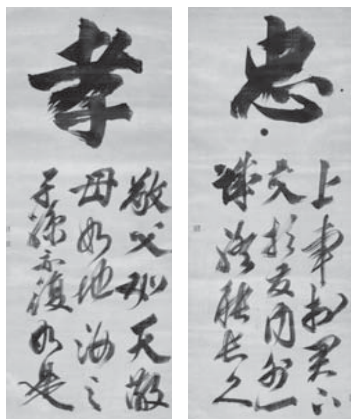 忠
上事於君下
交於友内外一
誠終能長久
孝
敬父如天敬
母如地汝之
子孫亦復如是